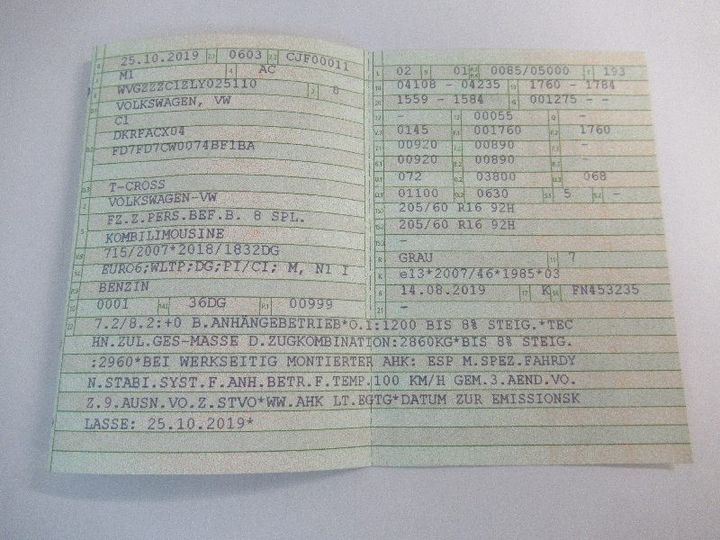 25.10.2019 0603 CJF00011
M1 4 AC
WVGZZZC1ZLY025110 8
VOLKSWAGEN, VW
C1
DKRFACX04
FD7FD7CW0074BF1BA
T-CROSS
VOLKSWAGEN-VW
FZ.Z.PERS.BEF.B. 8 SPL.
KOMBILIMOUSINE
715/2007*2018/1832DG
EURO6;WLTP;DG;PI/CI; M, N1 I
BENZIN
0001 36DG 00999
02 01 0085/05000 193
04108 - 04235 1760 - 1784
1559 - 1584 001275 - -
- 00055 -
0145 001760 1760
00920 00890 -
00920 00890 -
072 03800 068
01100 0630 5 -
205/60 R16 92H
205/60 R16 92H
-
GRAU 7
e13*2007/46*1985*03
14.08.2019 K FN453235
-
7.2/8.2:+0 B.ANHÄNGEBETRIEB*O.1:1200 BIS 8% STEIG.*TEC
HN.ZUL.GES-MASSE D.ZUGKOMBINATION:2860KG*BIS 8% STEIG.
:2960*BEI WERKSEITIG MONTIERTER AHK: ESP M.SPEZ.FAHRDY
N.STABI.SYST.F.ANH.BETR.F.TEMP.100 KM/H GEM.3.AEND.VO.
Z.9.AUSN.VO.Z.STVO*WW.AHK LT.EGTG*DATUM ZUR EMISSIONSK
LASSE: 25.10.2019*